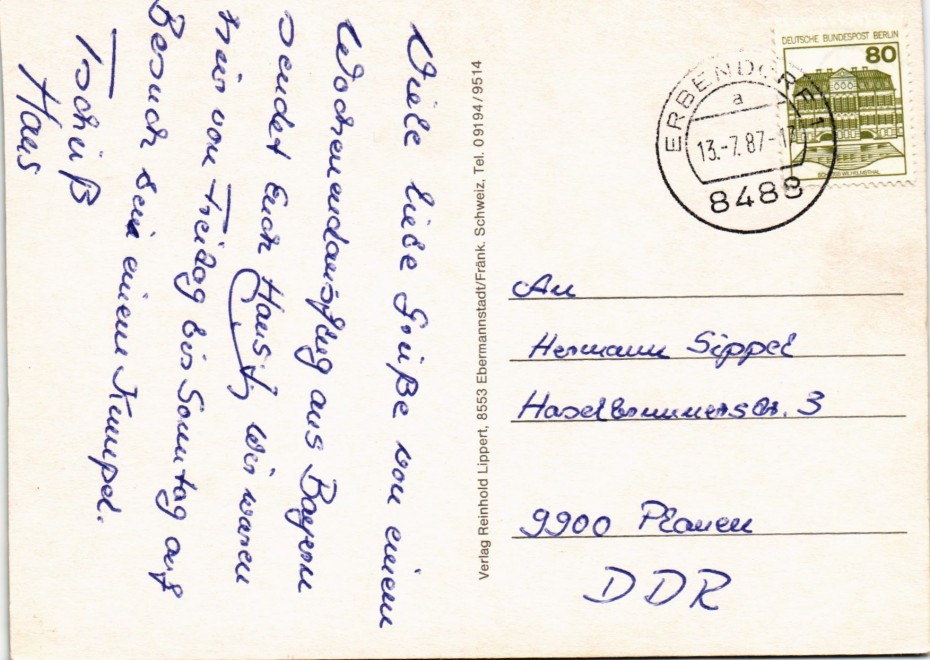 Viele liebe Grüße von einem
Wochenendausflug aus Bayern
sendet Euch Hans, wir waren
hier von Freitag bis Sonntag auf
Besuch bei einem Kumpel.
Tschüß
Hans
Verlag Reinhold Lippert, 8553 Ebermannstadt/Fränk. Schweiz, Tel. 09194/9514
DEUTSCHE BUNDESPOST BERLIN
80
SCHLOSS WILHELMSTHAL
ERBENDORF 1
a
13.-7.87-17
8488
An
Hermann Sippel
Haselbrunnerstr. 3
9900 Plauen
DDR